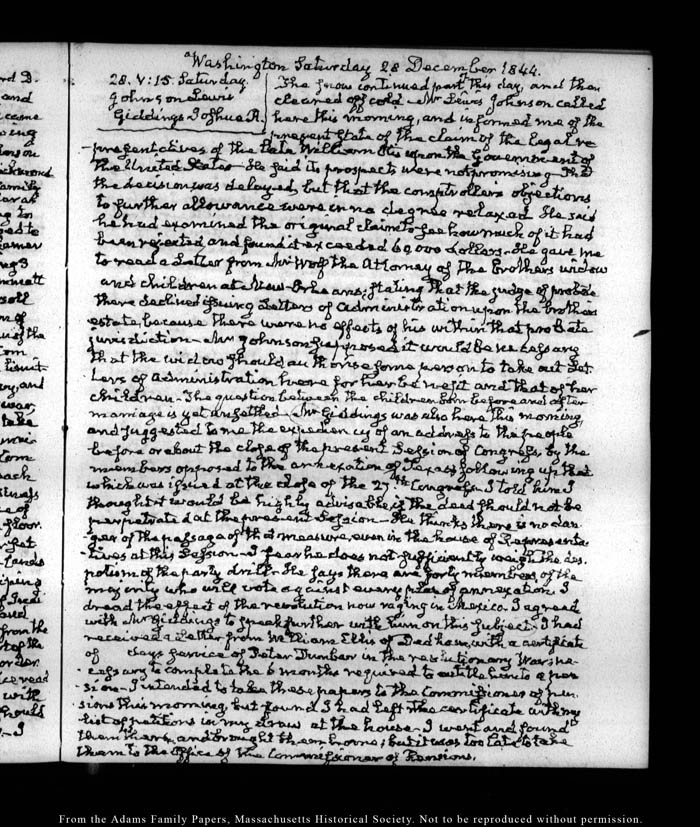 Washington Saturday 28 December 1844.
28. V:15. Saturday.
Johnson Lewis
Giddings Joshua R.
The snow continued part this day, and then
cleared off cold. Mr Lewis Johnson called
here this morning, and informed me of the
present state of the claim of the legal re
-presentatives of the late William Otis upon the Government of
the United States. He said its prospects were not promising. That
the decision was delayed, but that the comptroller's objections
to further allowance were in no degree relaxed. He said
he had examined the original claim to see how much of it had
been rejected, and found it exceeded 69,000 dollars. He gave me
to read a Letter from Mr Wolf the Attorney of the Brothers widow
and children at New-Orleans, stating that the judge of probate
there declined issuing Letters of administration upon the brothers
estate, because there were no effects of his within that probate
jurisdiction. Mr Johnson supposed it would be necessary
that the widow should authorise some person to take out Let-
ters of administration here for her benefit and that of her
children. The question between the children born before and after
marriage is yet unsettled. Mr Giddings was also here this morning,
and suggested to me the expediency of an address to the people
before or about the close of the present Session of Congress, by the
members opposed to the annexation of Texas, following up that
which was issued at the close of the 27th Congress. I told him I
thought it would be highly advisable, if the deed should not be
perpetrated at the present Session. He thinks there is no dan-
-ger of the passage of the measure, even in the house of Representa-
-tives at this Session. I fear he does not sufficiently weigh the des-
potism of the party drill. He says there are forty members of the
majority who will vote against every plan of annexation. I
dread the effect of the revolution now raging in Mexico. I agreed
with Mr Giddings to speak further with him on this subject. I had
received a Letter from William Ellis of Dedham, with a certificate
of days service of Peter Dunbar in the revolutionary War, ne-
-cessary to complete the 6 months required to entitle him to a pen
-sion. I intended to take these papers to the Commissioner of pen-
sions this morning, but found I had left the certificate with my
list of petitions in my draw at the house. I went and found
them there, and brought them home; but it was too late to take
them to the Office of the Commissioner of Pensions.
From the Adams Family Papers, Massachusetts Historical Society. Not to be reproduced without permission.